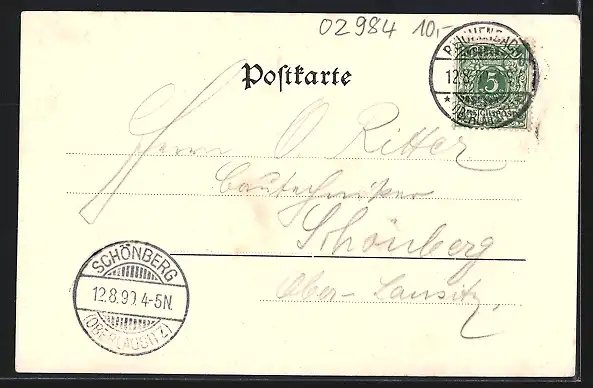 02984 10,-
Postkarte
REICHENBACH
12.8.
(OBERLAUSITZ)
5
Herrn O. Ritter
Bautechniker
Schönberg
Ober-Lausitz.
SCHÖNBERG
12.8.99.4-5N.
(OBERLAUSITZ)